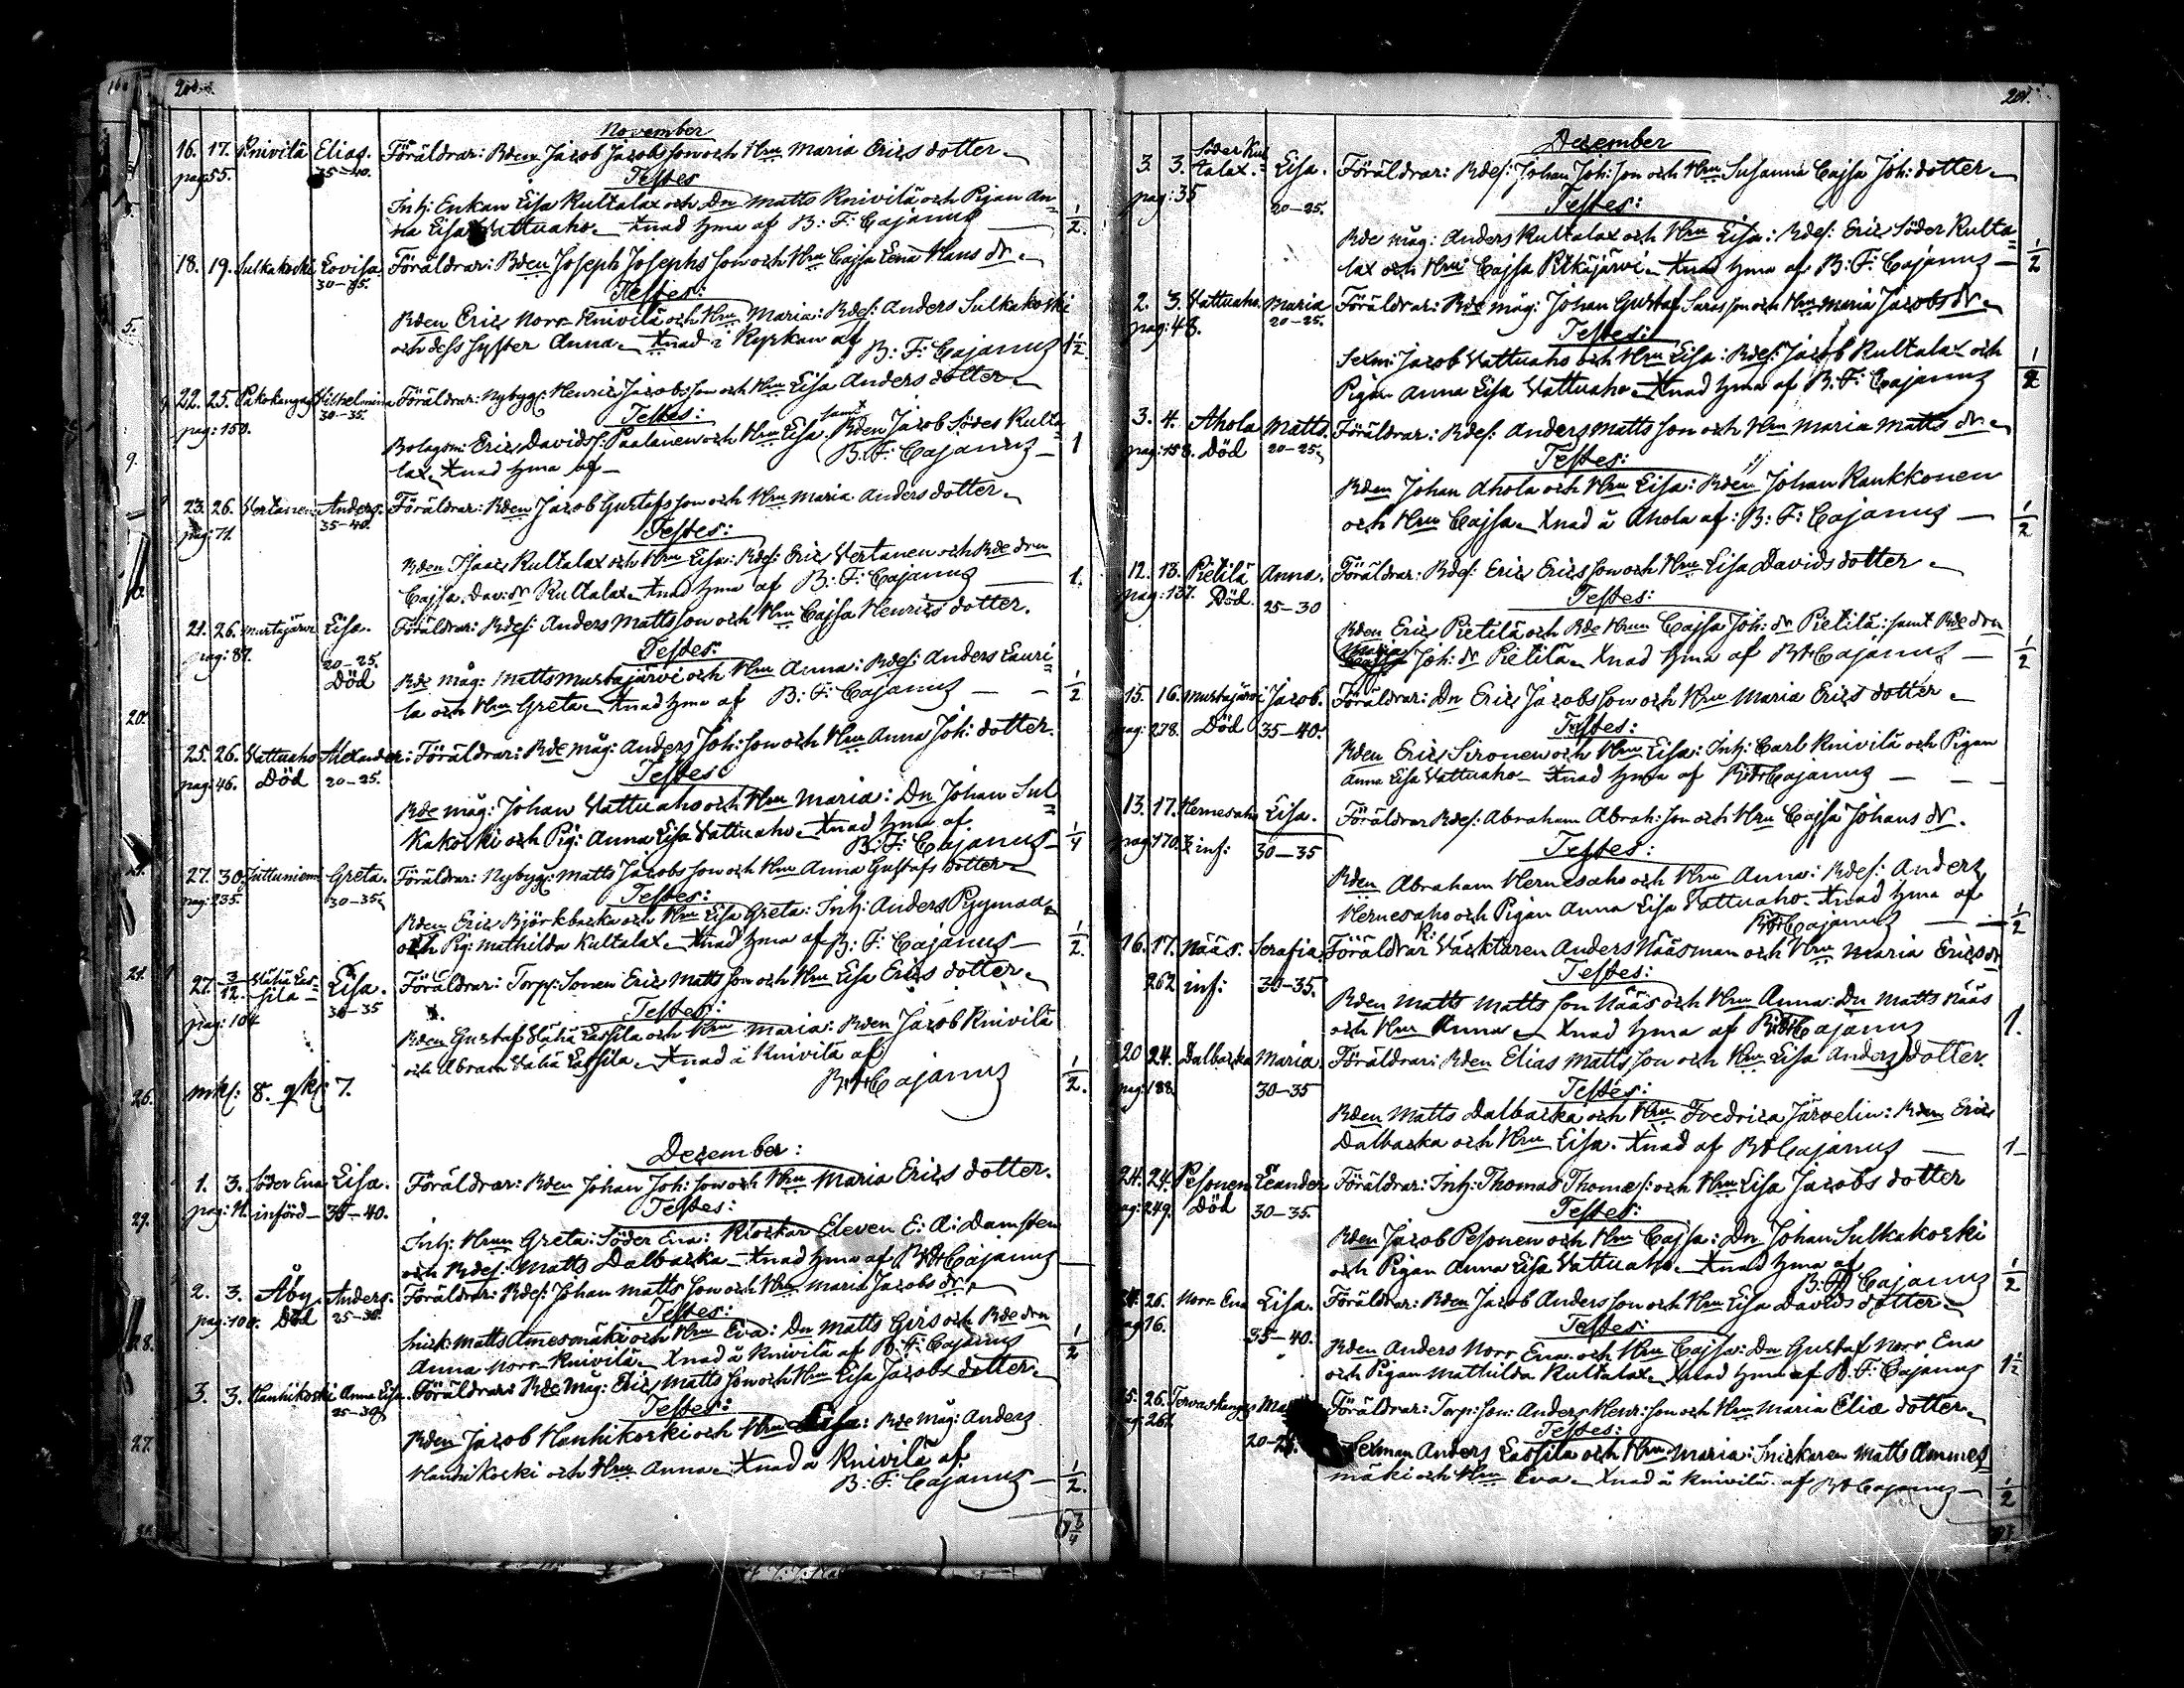 200.
November
16. 17. Knivilä Elias. Föräldrar: Bden Jacob Jacobs son och Hru Maria Erics dotter
pag: 55. 35–40.
Testes
Inh: Enkan Lisa Kultalax och Dn Matts Knivilä och Pigan An-
na Lisa Vattuaho. Xnad hma af B: F: Cajanus 1/2
18. 19. Sulkakoski Lovisa Föräldrar: Bden Joseph Josephs son och Hru Cajsa Lena Hans dr
30–35.
Testes:
Bden Eric Norr-Knivilä och Hru Maria: Bdes: Anders Sulkakoski
och dess syster Anna. Xnad i Kyrkan af B: F: Cajanus 1 1/2
22. 25. Pakokangas Vilhelmina Föräldrar: Nybygg: Henric Jacobs son och Hru Lisa Anders dotter
pag: 150. 30–35.
Testes:
Bolagsm: Eric Davids: Paalanen och Hru Lisa samt Bden Jacob Söder Kulta-
lax. Xnad hma af – B: F: Cajanus – 1
23. 26. Vertanen Anders. Föräldrar: Bden Jacob Gustafs son och Hru Maria Anders dotter
pag: 71. 35–40.
Testes:
Bden Isaac Kultalax och Hru Lisa: Bdes: Eric Vertanen och Bde drn
Cajsa Dav: dr Kultalax. Xnad hma af B: F: Cajanus 1.
21. 26. Mustajärvi Lisa. Föräldrar: Bdes: Anders Matts son och Hru Cajsa Henrics dotter.
pag: 87. 20–25.
Död
Testes:
Bde måg: Matts Mustajärvi och Hru Anna: Bdes: Anders Lauri-
la och Hru Greta. Xnad hma af B: F: Cajanus – – 1/2
25. 26. Vattuaho Alexander: Föräldrar: Bde måg: Anders Joh: son och Hru Anna Joh: dotter.
pag: 46. Död 20–25.
Testes
Bde måg: Johan Vattuaho och Hru Maria: Dn Johan Sul-
kakoski och Pig: Anna Lisa Vattuaho. Xnad hma af
B: F: Cajanus 1/4
27. 30. Juttuniemi Greta. Föräldrar: Nybygg: Matts Jacobs son och Hru Anna Gustafs dotter
pag: 235. 30–35.
Testes:
Bden Eric Björkbacka och Hru Lisa Greta: Inh: Anders Pyymaa
och Pig: Mathilda Kultalax. Xnad hma af B: F: Cajanus – 1/2.
27. 3/12. Vähä Las- Lisa. Föräldrar: Torp: Sonen Eric Matts son och Hru Lisa Erics dotter
sila
pag: 104 30–35
Testes:
Bden Gustaf Vähä Lassila och Hru Maria: Bden Jacob Knivilä
och Abram Vähä Lassila. Xnad å Knivilä af
B: F: Cajanus 1/2.
mk: 8. qk: 7.
December:
1. 3. Söder Ena Lisa. Föräldrar: Bden Johan Joh: son och Hru Maria Erics dotter.
pag: 11. införd – 35–40.
Testes:
Inh: Hrun Greta: Söder Ena: Klockar Eleven E: A: Damsten
och Bdes: Matts Dalbacka – Xnad hma af B: F: Cajanus
2. 3. Åby. Anders. Föräldrar: Bdes: Johan Matts son och Hru Maria Jacobs dr
pag: 100. Död 25–30.
Testes:
Snick: Matts Amesmäki och Hru Eva: Dn Matts Girs och Bde drn
Anna Norr-Knivilä. Xnad å Knivilä af B: F: Cajanus 1/2
3. 3. Hanhikoski Anna Lisa. Föräldrar: Bde Måg: Eric Matts son och Hru Lisa Jacobs dotter
25–30
Testes:
Bden Jacob Hanhikoski och Hru Lisa: Bde Måg: Anders
Hanhikoski och Hru Anna. Xnad å Knivilä af
B: F: Cajanus – 1/2.
201.
December
3. 3. Söder Kul
talax. Lisa. Föräldrar: Bdes: Johan Joh: son och Hru Susanna Cajsa Joh: dotter
pag: 35 20–25.
Testes:
Bde måg: Anders Kultalax och Hru Lisa: Bdes: Eric Söder Kulta-
lax och Hru Cajsa Pitkäjärvi. Xnad hma af B: F: Cajanus – 1/2
2. 3. Vattuaho. Maria Föräldrar: Bde måg: Johan Gustaf Saras son och Hru Maria Jacobs dr
pag: 48. 20–25.
Testes:
Sexm: Jacob Vattuaho och Hru Lisa: Bdes: Jacob Kultalax och
Pigan Anna Lisa Vattuaho. Xnad hma af B: F: Cajanus 1/2
3. 4. Ahola Matts. Föräldrar: Bdes: Anders Matts son och Hru Maria Matts dr
pag: 158. Död 20–25.
Testes:
Bden Johan Ahola och Hru Lisa: Bden Johan Kaukkonen
och Hru Cajsa. Xnad å Ahola af: B: F: Cajanus – 1/2
12. 13. Pietilä Anna. Föräldrar: Bdes: Eric Erics son och Hru Lisa Davids dotter
pag: 137. Död. 25–30
Testes:
Bden Eric Pietilä och Bde Hrun Cajsa Joh: dr Pietilä: samt Bde drn
Maria Joh: dr Pietilä. Xnad hma af B F Cajanus – 1/2
15. 16. Mustajärvi Jacob. Föräldrar: Dn Eric Jacobs son och Hru Maria Erics dotter
pag: 278. Död 35–40.
Testes:
Bden Eric Sironen och Hru Lisa: Inh: Carl Knivilä och Pigan
Anna Lisa Vattuaho – Xnad hma af B: F: Cajanus – – –
13. 17. Hernesaho Lisa. Föräldrar Bdes: Abraham Abrah: son och Hru Cajsa Johans dr.
pag: 170. inf: 30–35
Testes:
Bden Abraham Hernesaho och Hru Anna: Bdes: Anders
Hernesaho och Pigan Anna Lisa Vattuaho. Xnad hma af
B: F: Cajanus – 1/2
16. 17. Nääs. Serafia. Föräldrar Väcktaren Anders Nääsman och Hru Maria Erics dr
262 inf: 30–35.
Testes:
Bden Matts Matts son Nääs och Hru Anna: Dn Matts Nääs
och Hru Anna. Xnad hma af B: F: Cajanus 1.
20 24. Dalbacka Maria. Föräldrar: Bden Elias Matts son och Hru Lisa Anders dotter.
pag: 188. 30–35
Testes:
Bden Matts Dalbacka och Hru Fredrica Järvelin: Bden Eric
Dalbacka och Hru Lisa. Xnad af B F Cajanus – 1
24. 24. Pesonen Leander Föräldrar: Inh: Thomas Thomæs: och Hru Lisa Jacobs dotter
pag: 249. Död 30–35.
Testes:
Bden Jacob Pesonen och Hru Cajsa: Dn Johan Sulkakoski
och Pigan Anna Lisa Vattuaho. Xnad hma af
B: F: Cajanus 1/2
26. Norr Ena Lisa. Föräldrar: Bden Jacob Anders son och Hru Lisa Davids dotter
pag 16. 35–40.
Testes:
Bden Anders Norr Ena och Hru Cajsa: Dn Gustaf Norr Ena
och Pigan Mathilda Kultalax. Xnad hma af B. F: Cajanus 1 1/2
25. 26. Torvaskangas Föräldrar: Torp: son: Anders Henr: son och Hru Maria Eliæ dotter
Testes:
Sexman Anders Lassila och Hru Maria: Snickaren Matts Ammes
mäki och Hru Eva. Xnad å Knivilä af B F Cajanus – 1/2